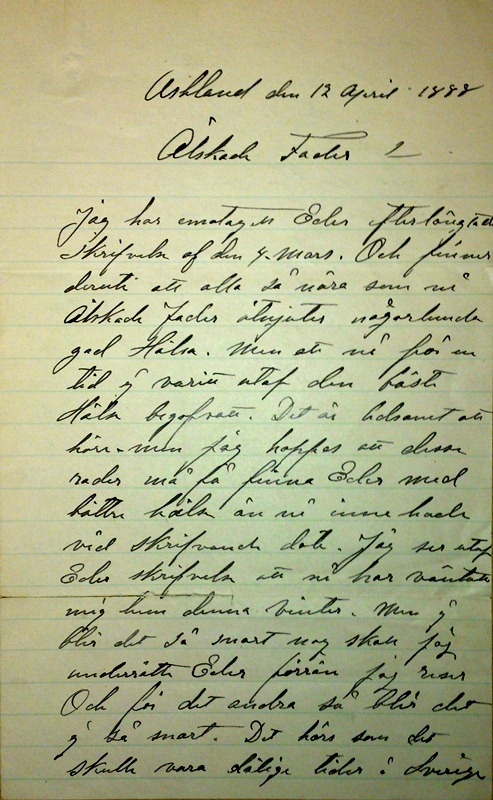 Ashland den 12 April 1888
Älskade Fader
Jag har emotagit Eder efterlängtade
skrifvelse af den 4 Mars. Och finner
deruti att alla så nära som ni
älskade Fader åtnjuter någorlunda
god Hälsa. Men att ni för en
tid ej varit utaf den bästa
Hälsa begåfvad. Det är ledsamt att
höra men jag hoppas att dessa
rader må få finna Eder med
bättre hälsa än ni inne hade
vid skrifvande dato. Jag ser utaf
Eder skrifvelse att ni har väntat
mig hem denna vinter. Men ej
blir det så snart nog skall jag
underrätta Eder förrän jag reser
Och för det andra så blir det
ej så snart. Det hörs som det
skulle vara dåliga tider i Sverige